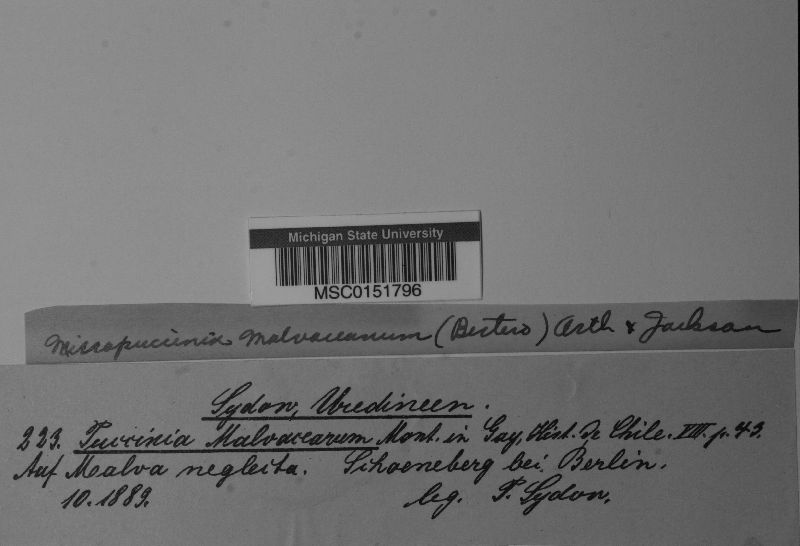 Michigan State University
MSC0151796
Micropuccinia Malvacearum (Bertero) Arth & Jackson
Sydow, Uredineen.
223. Puccinia Malvacearum Mont. in Gay, Hist. de Chile. VIII. p. 43.
Auf Malva neglecta. Schoeneberg bei Berlin.
10. 1889. leg. P. Sydow.